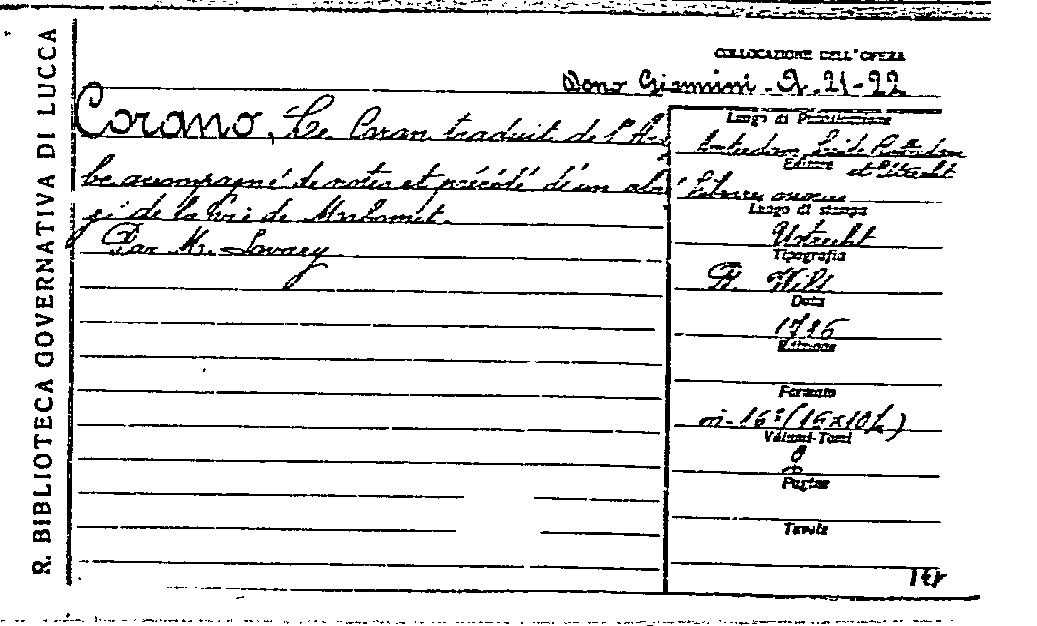 R. BIBLIOTECA GOVERNATIVA DI LUCCA
COLLOCAZIONE DELL'OPERA
Dono Giannini - 9. 21-22
Corano, Le Coran traduit de l'Ara
be acompagné de notes et précédé d'un abré
gé de la vie de Mahomet.
Par Mr. Savary
Luogo di Pubblicazione
Amsterdam, Leide Rotterdam
et Utrecht
Editore
Libraires
Luogo di stampa
Utrecht
Tipografia
Wild
Data
1786
Edizione
Formato
in-16º (16x10½)
Volumi-Tomi
2
Pagine
Tavole